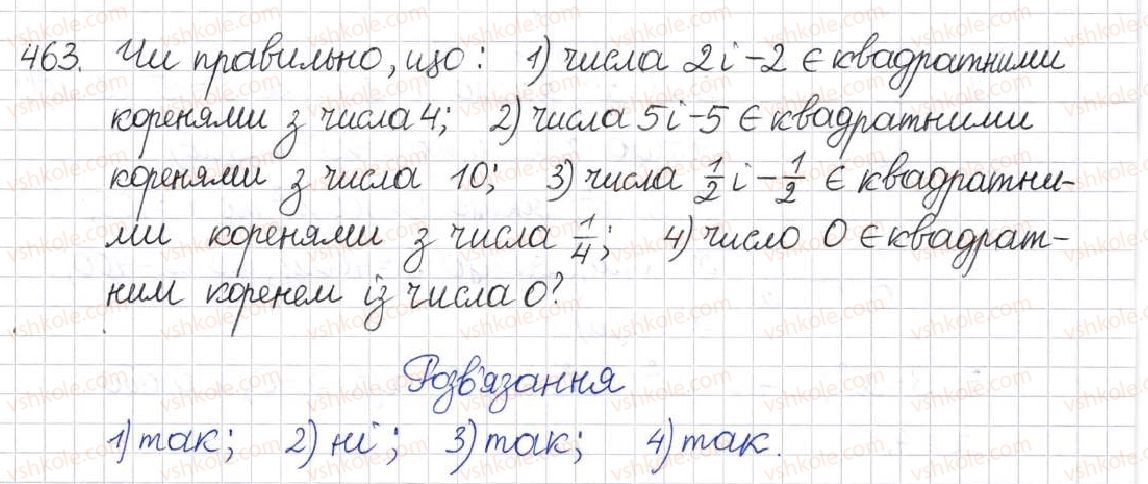 463. Чи правильно, що: 1) числа 2 і -2 є квадратними
коренями з числа 4; 2) числа 5 і -5 є квадратними
коренями з числа 10; 3) числа 1/2 і -1/2 є квадратни-
ми коренями з числа 1/4; 4) число 0 є квадрат-
ним коренем із числа 0?
Розв'язання
1) так; 2) ні; 3) так; 4) так.